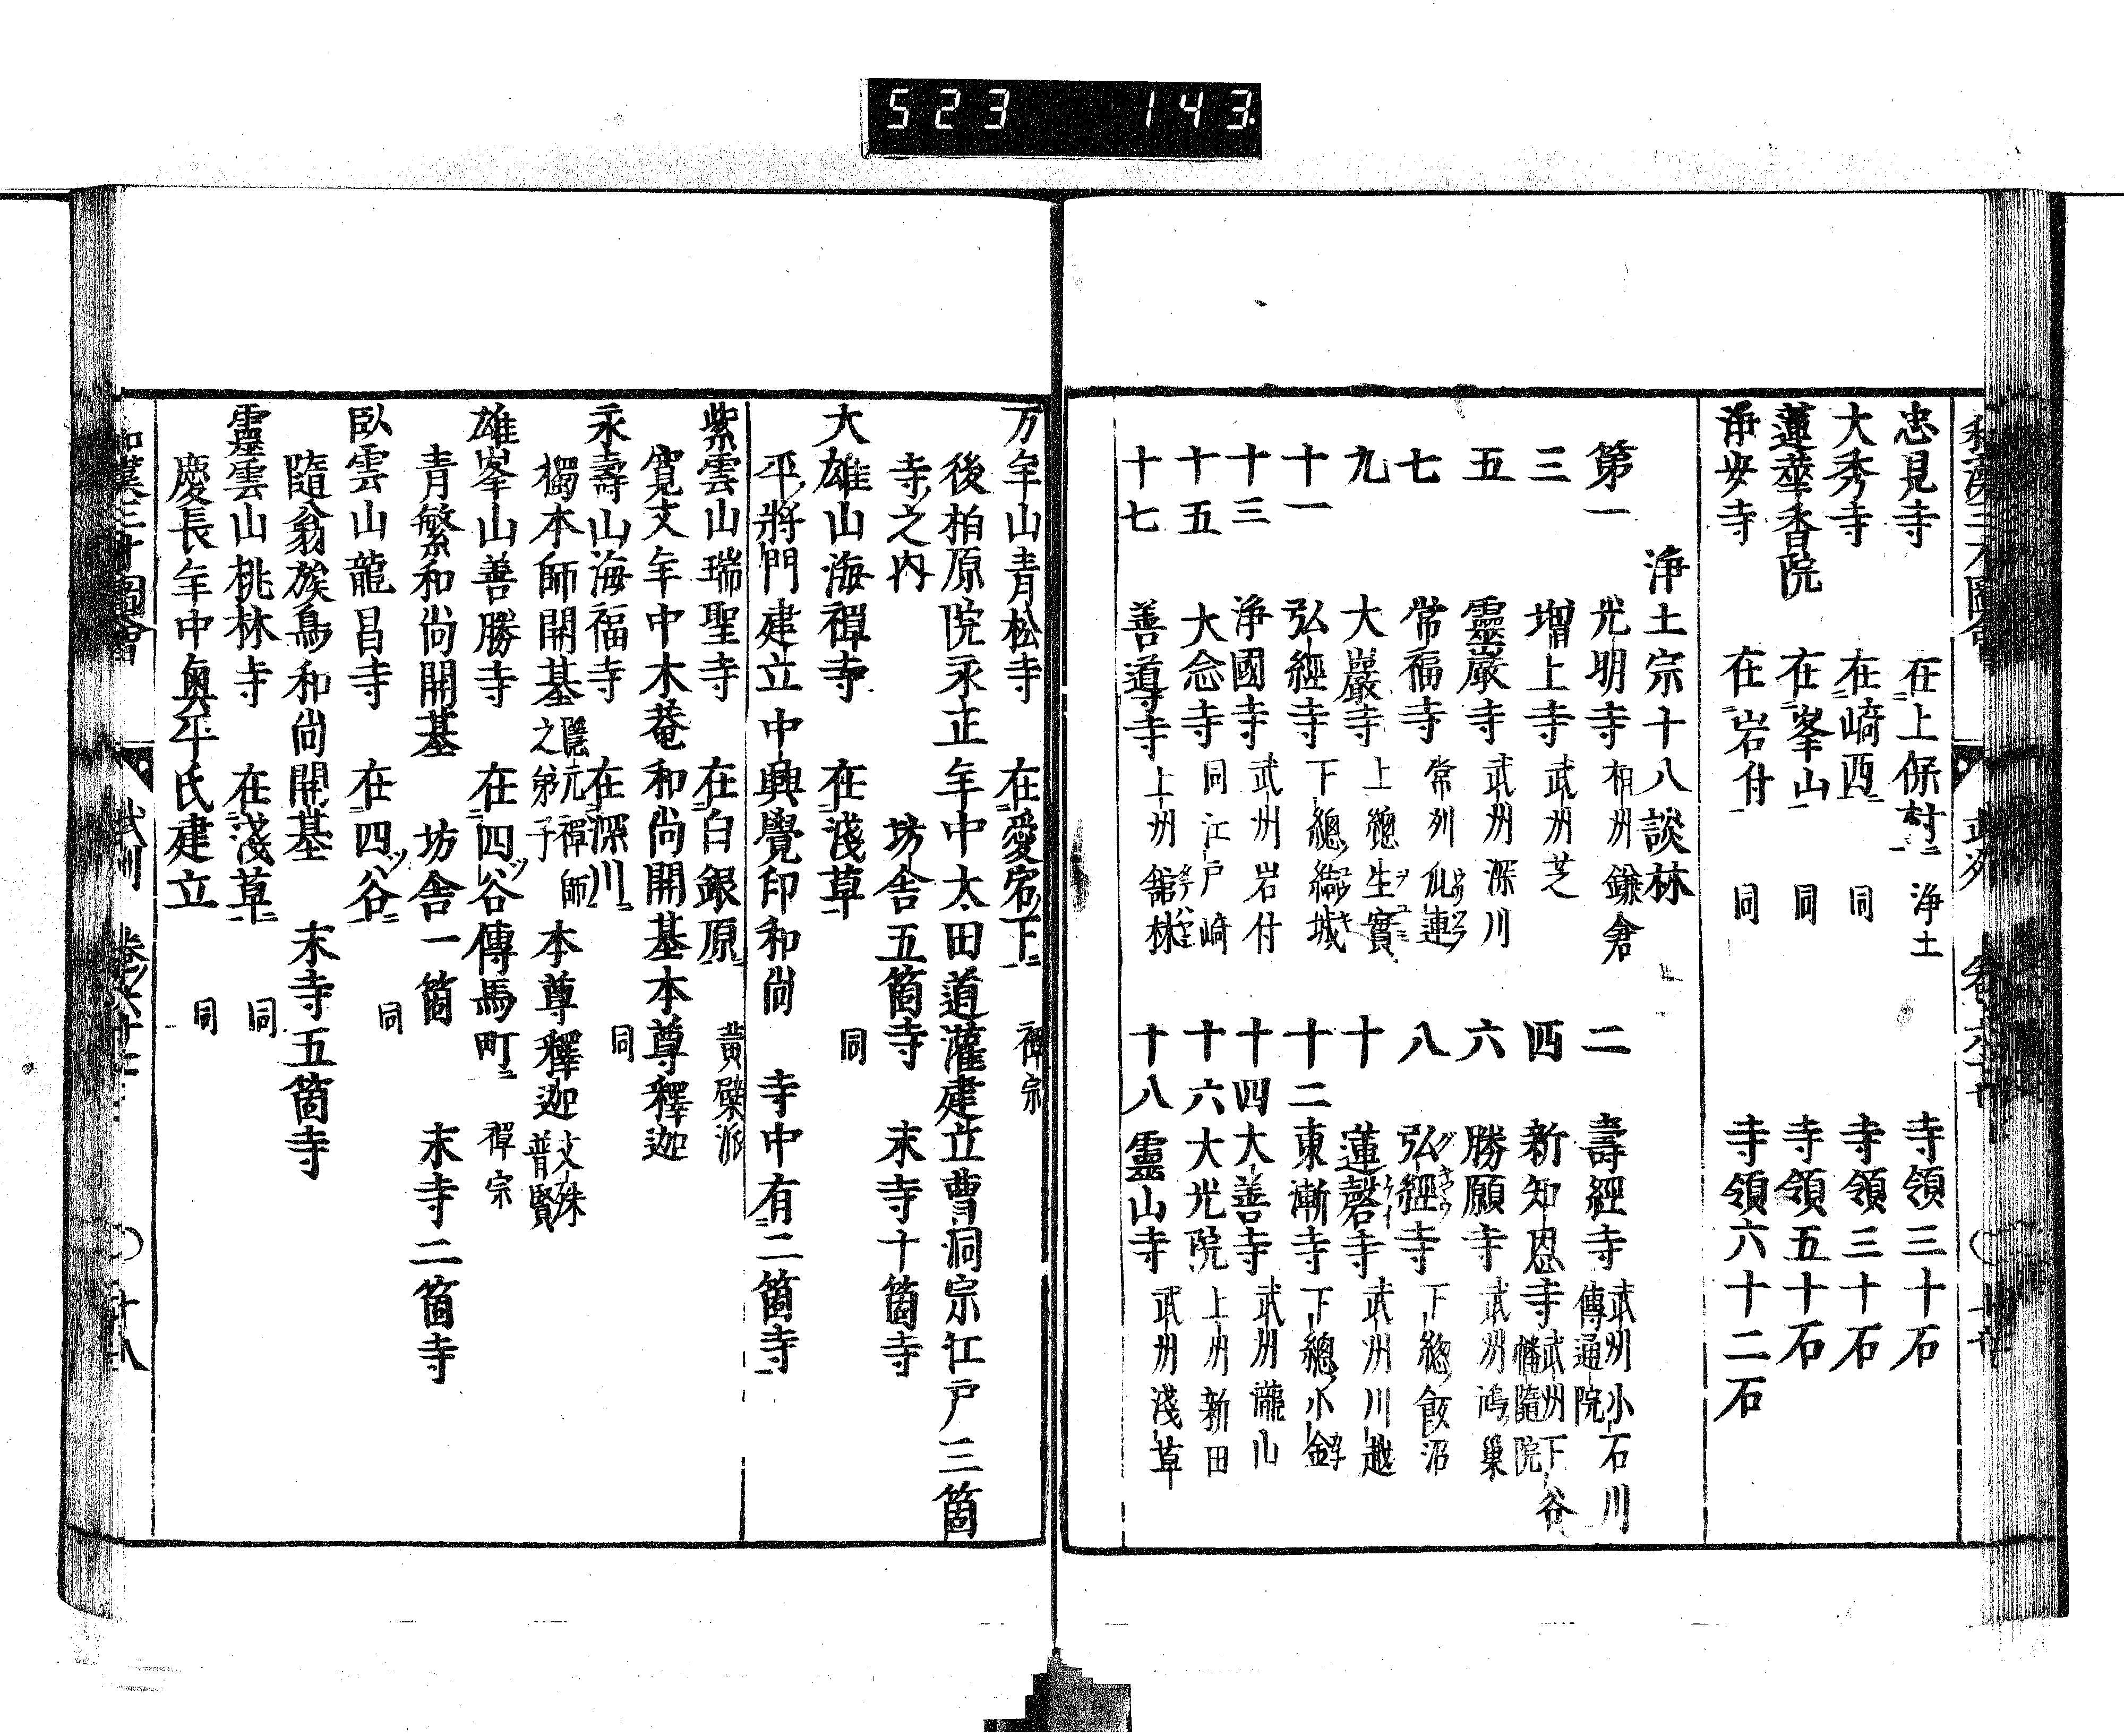 523 143
忠見寺 在上保村 浄土 寺領三十石
大秀寺 在﨑西 同 寺領三十石
蓮華香院 在峯山 同 寺領五十石
浄安寺 在岩付 同 寺領六十二石
浄土宗十八談林
第一 光明寺 相州鎌倉 二 壽經寺 武州小石川 傳通院
三 増上寺 武州芝 四 新知恩寺 武州下谷 幡隨院
五 靈巖寺 武州深川 六 勝願寺 武州鴻巣
七 常福寺 常州瓜連 八 弘經寺 下總飯沼
九 大巖寺 上總生實 十 蓮馨寺 武州川越
十一 弘經寺 下總結城 十二 東漸寺 下總小金
十三 浄國寺 武州岩付 十四 大善寺 武州瀧山
十五 大念寺 同江戸﨑 十六 大光院 上州新田
十七 善導寺 上州舘林 十八 靈山寺 武州淺草
万年山青松寺 在愛宕下 禅宗
後柏原院永正年中太田道灌建立曹洞宗江戸三箇
寺之内 坊舎五箇寺 末寺十箇寺
大雄山海禪寺 在淺草 同
平將門建立中興覺印和尚 寺中有二箇寺
紫雲山瑞聖寺 在白銀原 黄檗派
寛文年中木菴和尚開基本尊釋迦
永壽山海福寺 在深川 同
獨本師開基 隱元禪師之弟子 本尊釋迦 文殊 普賢
雄峯山善勝寺 在四ツ谷傳馬町 禪宗
青繁和尚開基 坊舎一箇 末寺二箇寺
臥雲山龍昌寺 在四ツ谷 同
隨翁族鳥和尚開基 末寺五箇寺
靈雲山桃林寺 在淺草 同
慶長年中奥平氏建立 同